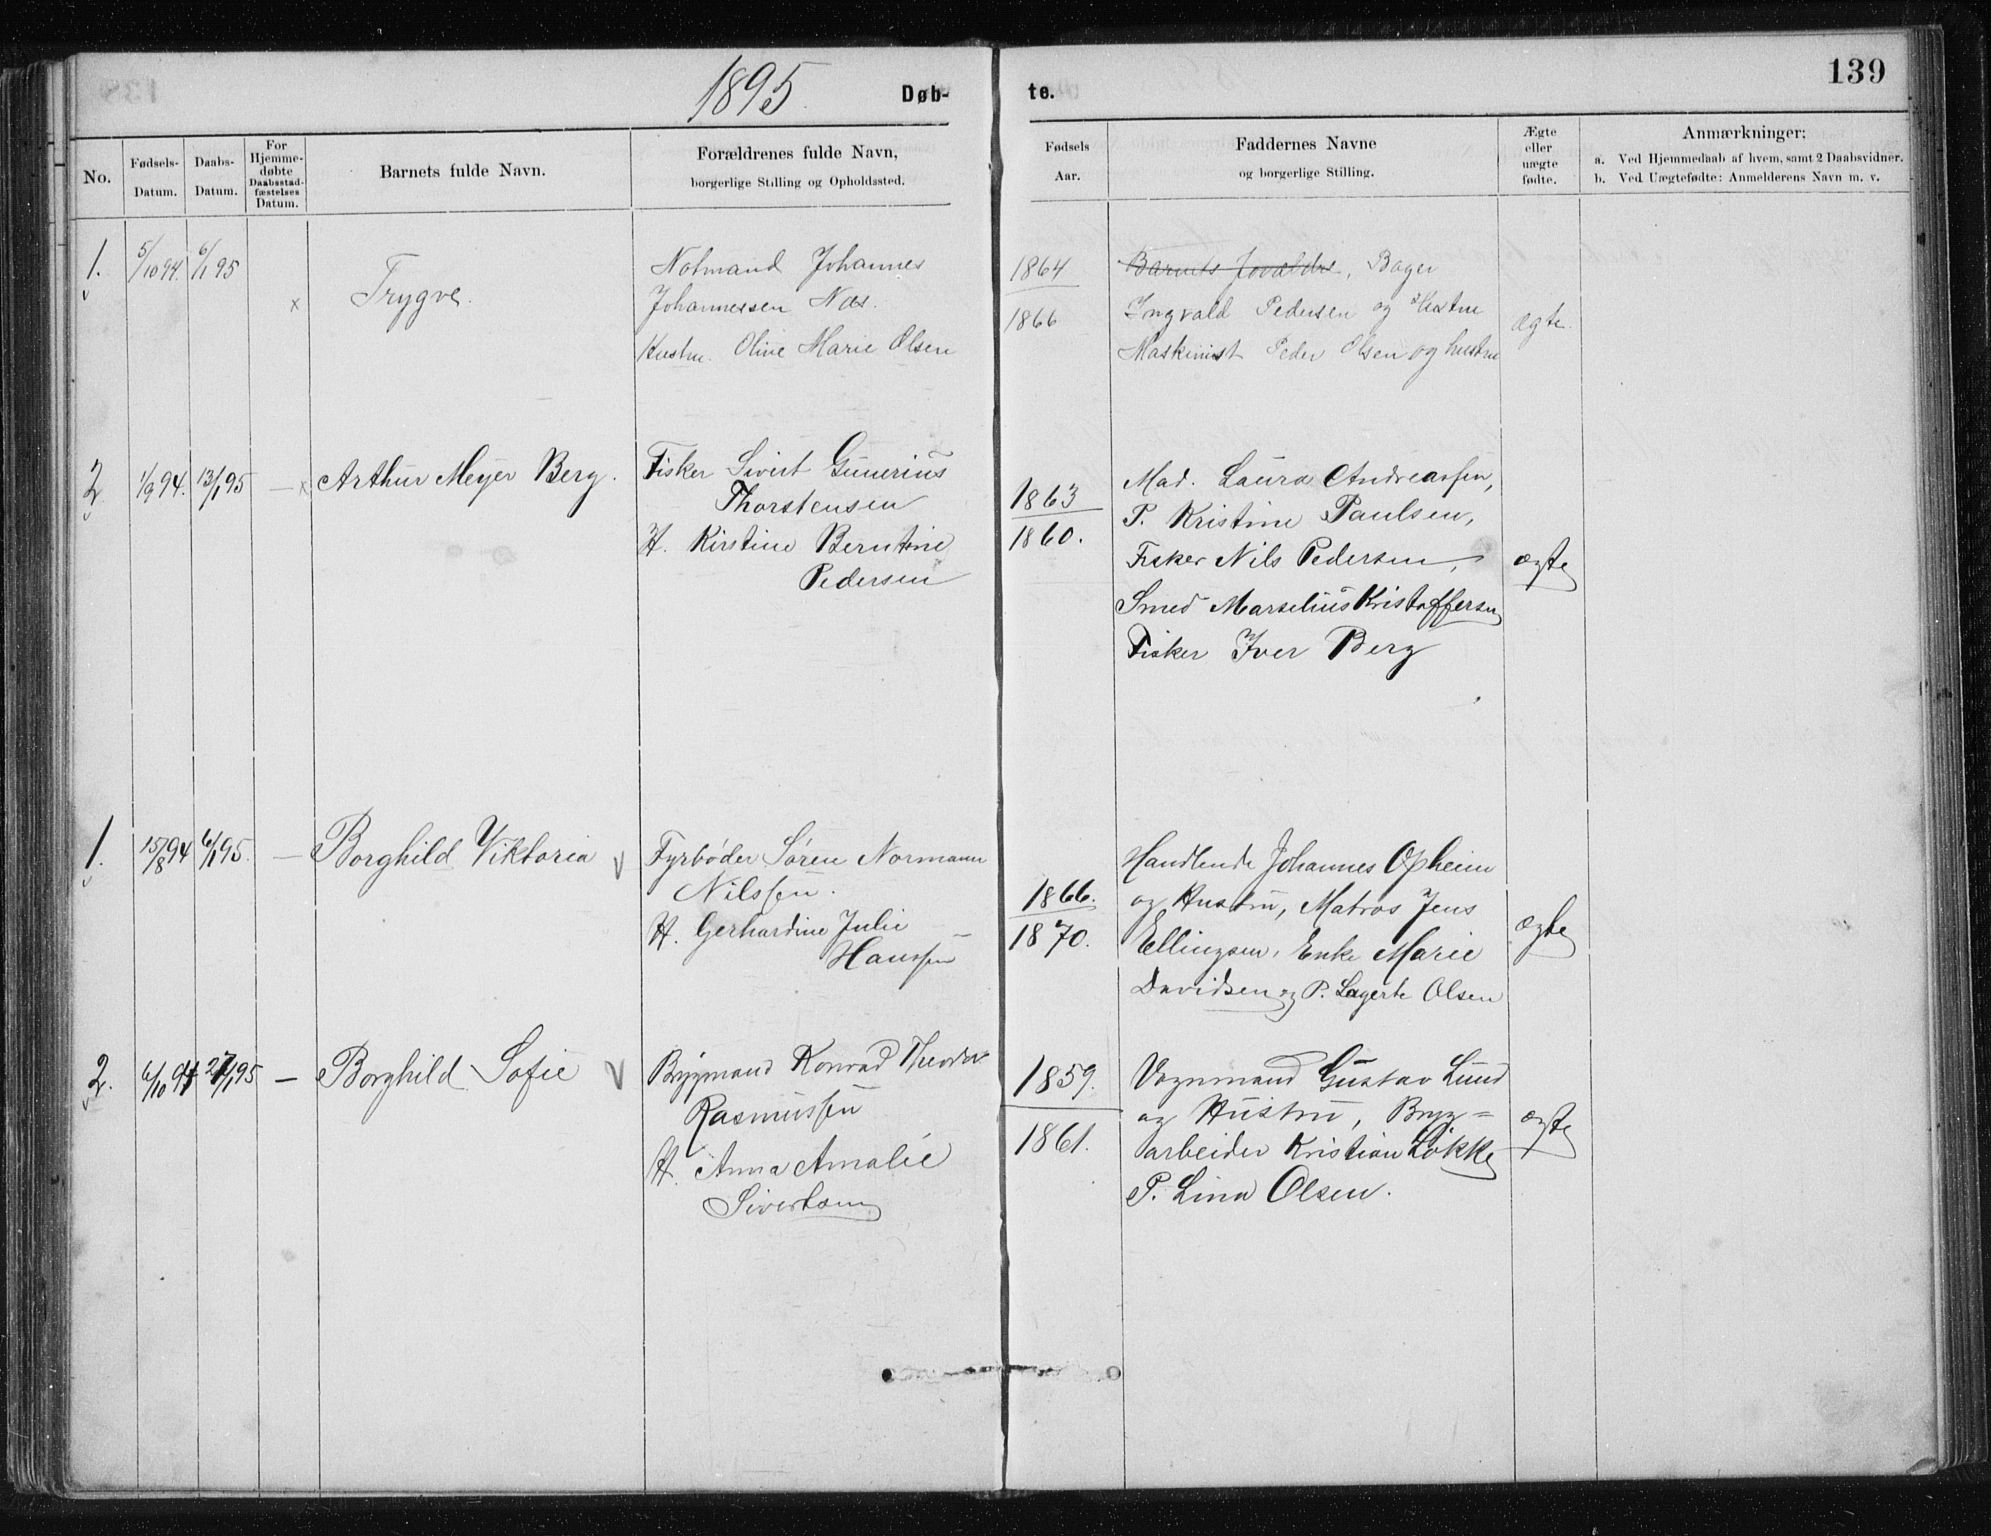 1895
Døb-
te.
139
No.
Fødsels-
Datum.
Daabs-
Datum.
For
Hjemme-
døbte
Daabsstad-
fæstelses
Datum.
Barnets fulde Navn.
Forældrenes fulde Navn,
borgerlige Stilling og Opholdssted.
Fødsels
Aar.
Faddernes Navne
og borgerlige Stilling.
Ægte
eller
uægte
fødte.
Anmærkninger:
a. Ved Hjemmedaab af hvem, samt 2 Daabsvidner.
b. Ved Uægtefødte: Anmelderens Navn m. v.
1.
5/10 94.
6/1 95
x
Trygve.
Notmand Johannes
Johannessen Næs.
Hustru. Oline Marie Olsen
1864
1866
Barnets Forældre, Bager
Ingvald Pedersen og Hustru
Maskinist Peder Olsen og hustru
ægte.
2
1/9 94.
13/1 95
— x
Arthur Meyer Berg.
Fisker Sivert Gunerius
Thorstensen
H. Kirstine Berntine
Pedersen
1863
1860.
Mad. Laura Andreassen,
P. Kristine Paulsen,
Fisker Nils Pedersen,
Smed Marselius Kristoffersen
Fisker Iver Berg
ægte
1.
15/8 94
6/1 95.
—
Borghild Viktoria
Fyrbøder Søren Normann
Nilssen.
H. Gerhardine Julie
Hanssen
1866.
1870.
Handlende Johannes Opheim
og Hustru, Matros Jens
Ellingsen, Enke Marie
Davidsen og P. Lagerte Olsen
ægte
2.
6/10 94
27/1 95
—
Borghild Sofie
Brygmand Konrad Theodor
Rasmussen
H. Anna Amalie
Sivertsen
1859.
1861.
Vognmand Gustav Lund
og Hustru, Bryg=
arbeider Kristian Løkke
P. Lina Olsen.
ægte